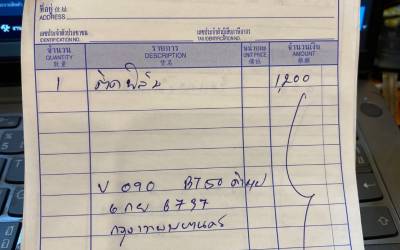 ที่อยู่
ADDRESS
เลขประจำตัวประชาชน เลขประจำตัวผู้เสียภาษีอากร
IDENTIFICATION NO. TAX IDENTIFICATION NO.
จำนวน รายการ หน่วยละ จำนวนเงิน
QUANTITY DESCRIPTION UNIT PRICE AMOUNT
1 ติดฟิล์ม 1,200
บ 090 BT50
6 กย 8737
กรุงเทพมหานคร